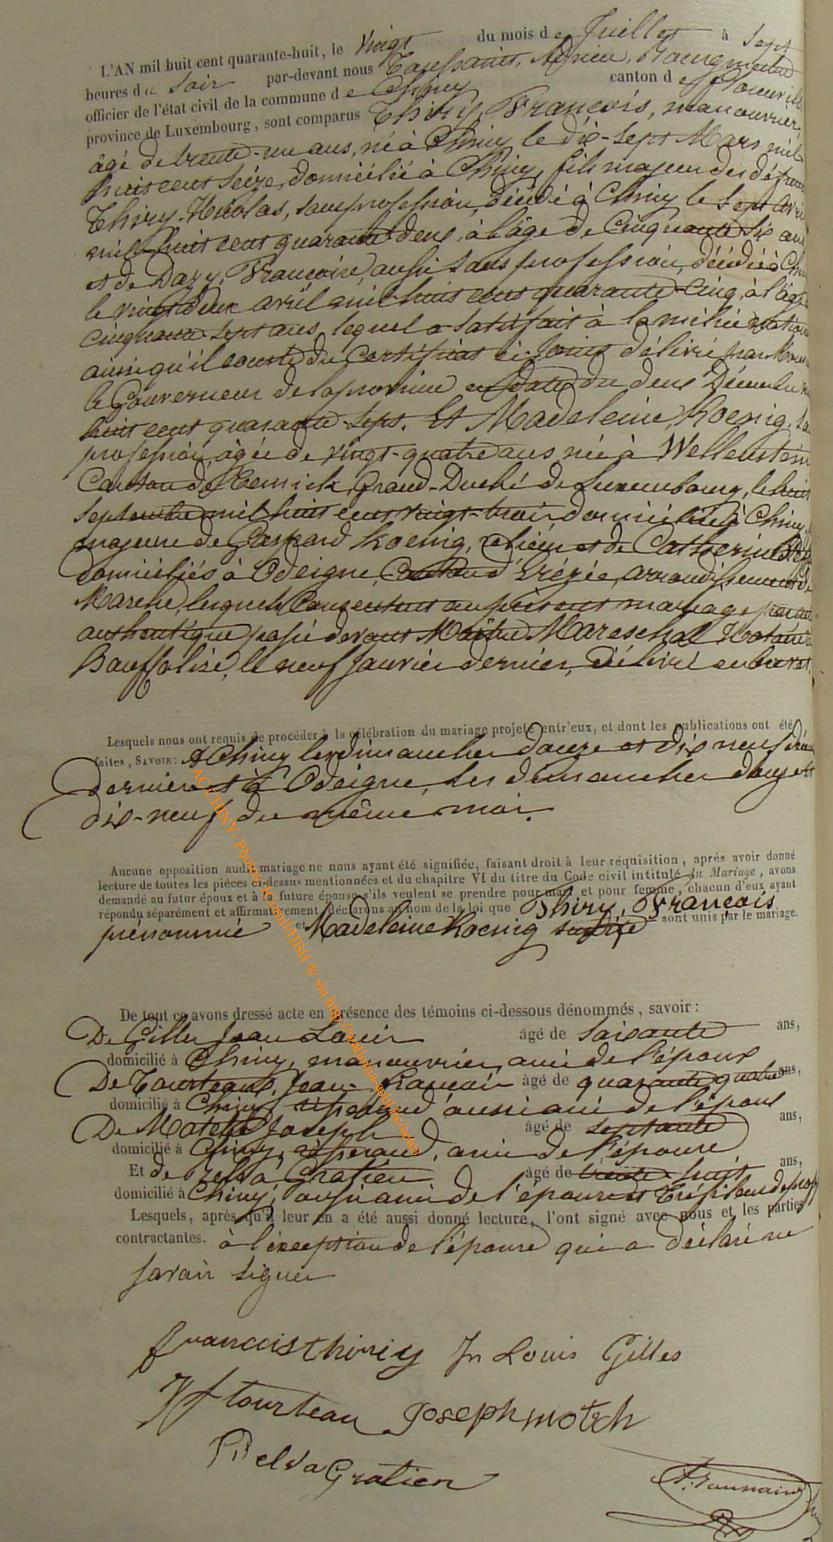 L'AN mil huit cent quarante-huit, le vingt du mois de Juillet à sept
heures du soir par-devant nous Adrien, Bourgmestre
officier de l'état civil de la commune de Chiny canton de florenville
province de Luxembourg, sont comparus Thiry, François, manouvrier,
âgé de trente-un ans, né à Chiny le dix-sept Mars mil
huit cent seize, domicilié à Chiny, fils majeur des défunts
Thiry Nicolas, sans profession, décédé à Chiny le sept avril
mil huit cent quarante deux, à l'âge de cinquante six ans
et de Françoise, aussi sans profession, décédée à Chi
le vingt deux avril mil huit cent quarante-cinq, à l'âge
cinquante-sept ans, lequel a satisfait à la milice nationa
ainsi qu'il conste du certificat ci-joint délivré par Mon
le Gouverneur de la province en date du deux Décembre
huit cent quarante-sept. Et Madeleine Koenig, sa
profession, âgée de vingt-quatre ans, née à Wellenstein
Canton de Remich, Grand-Duché de Luxembourg, le huit
septembre mil huit cent vingt-trois domiciliée à Chiny
majeure de Gaspard Koenig, et de Catherine
domiciliés à Odeigne, Canton d'Erezée, arrondissement de
Marche, lesquels consentent au présent mariage par
authentique passé devant Maître Mareschal Notaire
Houffalise, le neuf Janvier dernier, délivré en brevet.
Lesquels nous ont requis de procéder à la célébration du mariage projeté entr'eux, et dont les publications ont été
faites, SAVOIR : A Chiny les dimanches douze et dix neuf
Dernier et à Odeigne, les dimanches douze et
dix-neuf du même mois.
Aucune opposition audit mariage ne nous ayant été signifiée, faisant droit à leur réquisition, après avoir donné
lecture de toutes les pièces ci-dessus mentionnées et du chapitre VI du titre du Code civil intitulé du Mariage, avons
demandé au futur époux et à la future épouse s'ils veulent se prendre pour mari et pour femme, chacun d'eux ayant
répondu séparément et affirmativement, déclarons au nom de la loi que Thiry, François
prénommé et Madeleine Koenig susdite sont unis par le mariage.
De tout ce avons dressé acte en présence des témoins ci-dessous dénommés, savoir :
De Gilles Jean Louis âgé de soixante ans,
domicilié à Chiny, manouvrier, ami de l'époux
De Tourteau, Jean François âgé de quarante quatre ans,
domicilié à Chiny, aussi ami de l'époux
De Motch Joseph âgé de septante ans,
domicilié à Chiny, ami de l'épouse
Et de Pelva, Gratien âgé de trente-huit ans,
domicilié à Chiny, aussi ami de l'épouse et
Lesquels, après qu'il leur en a été aussi donné lecture, l'ont signé avec nous et les parties
contractantes. à l'exception de l'épouse qui a déclaré ne
savoir signer
francois thiriy Jn Louis Gilles
J f tourteau Joseph motch
Pelva Gratien